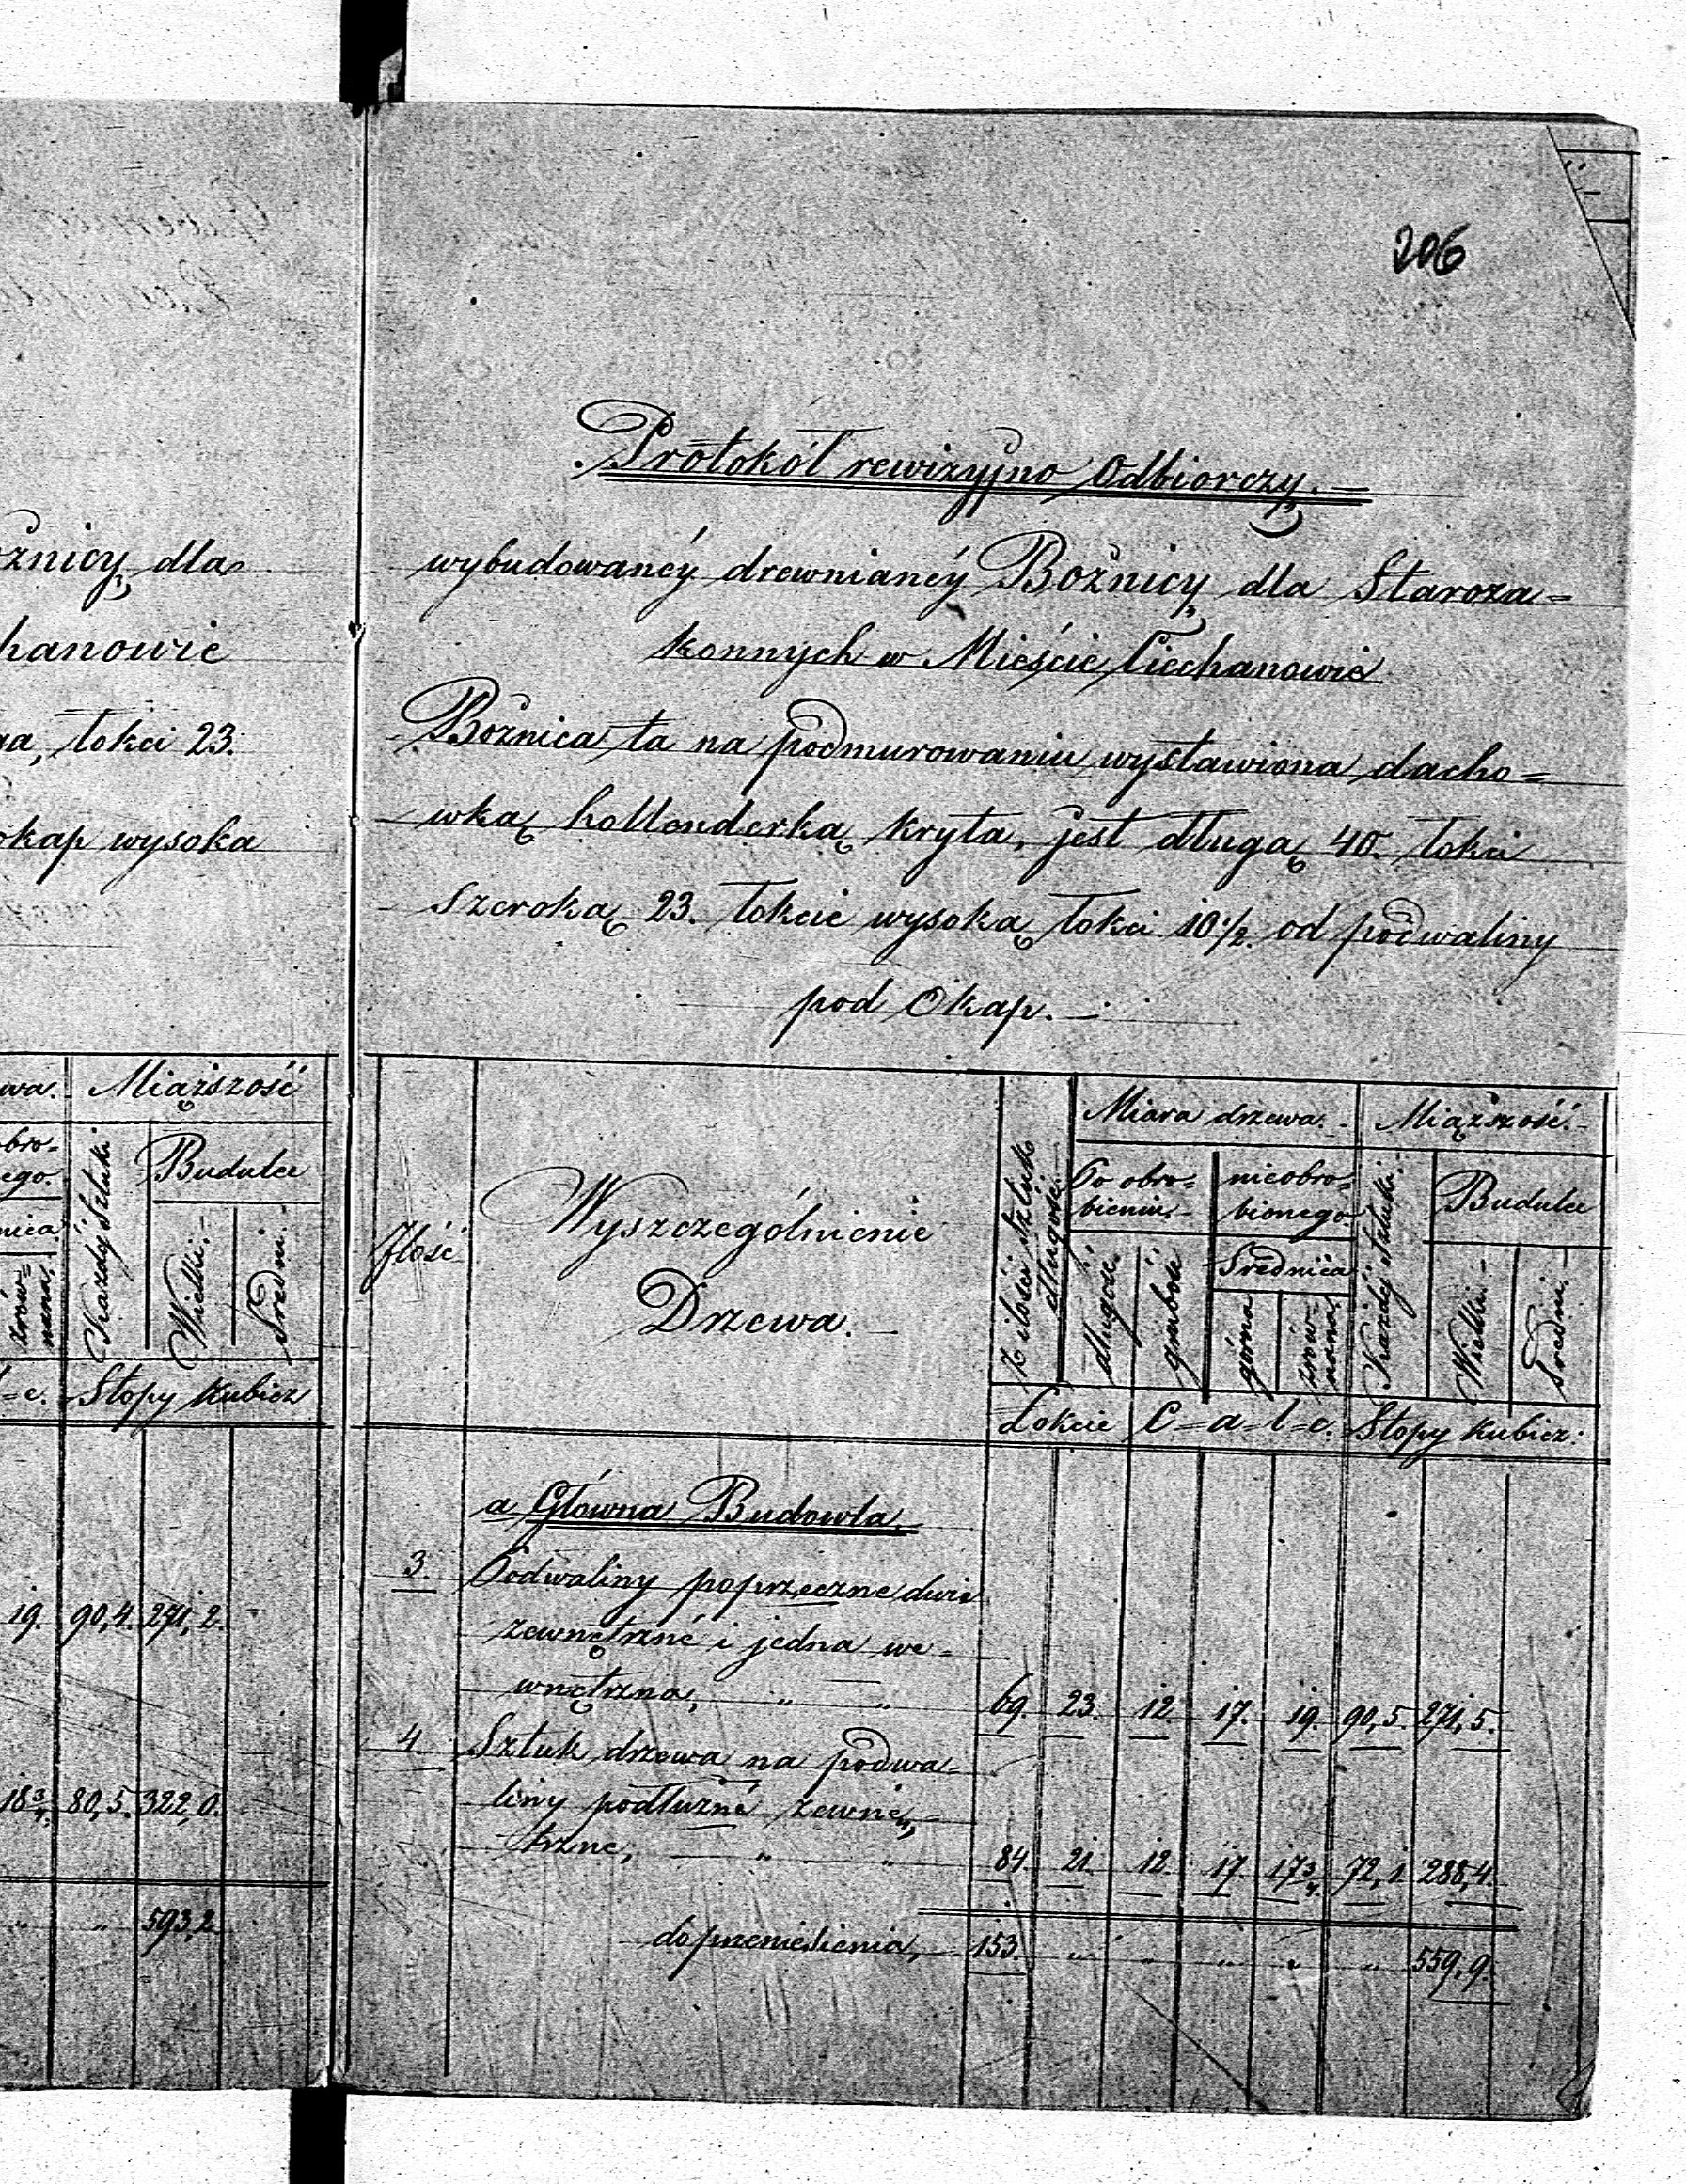 źnicy dla
hanowie
ga, łokci 23.
okap wysoka
wa. Miąższość
obro-
ego.
Każdéj Sztuki
Budulec
nica
zrów-
nana.
Wielki.
Średni.
l=e. Stopy kubicz
19. 90,4. 271,2.
18 3/4. 80,5. 322,0.
" " 593,2
206
Protokół rewizyjno Odbiorczy.
wybudowanéy drewnianéy Bożnicy dla Staroza=
konnych w Mieście Ciechanowie
Bożnica ta na podmurowaniu wystawiona dacho=
wką hollenderką kryta, jest długą 40. łokci
szeroką 23. łokcie wysoką łokci 10 1/2. od podwaliny
pod Okap.
Jlość
Wyszczególnienie
Drzewa.
Z ilości sztuk
długość.
Miara drzewa.
Po obro=
bieniu.
nieobro=
bionego.
długość
grubość
Średnica
górna
zrów=
nana
Miąższość.
Każdéj sztuki.
Budulec
Wielki.
Średni.
Łokcie C=a=l=e. Stopy kubicz:
a Główna Budowla.
3. Podwaliny poprzeczne dwie
zewnętrzné i jedna we=
wnętrzna, " " 69. 23. 12. 17. 19. 90,5. 271,5.
4 Sztuk drzewa na podwa=
liny podłużné zewnę=
trzne, " " 84. 21. 12. 17. 17 3/4. 72,1 288,4.
do przeniesienia, 153. " " " " " 559,9.